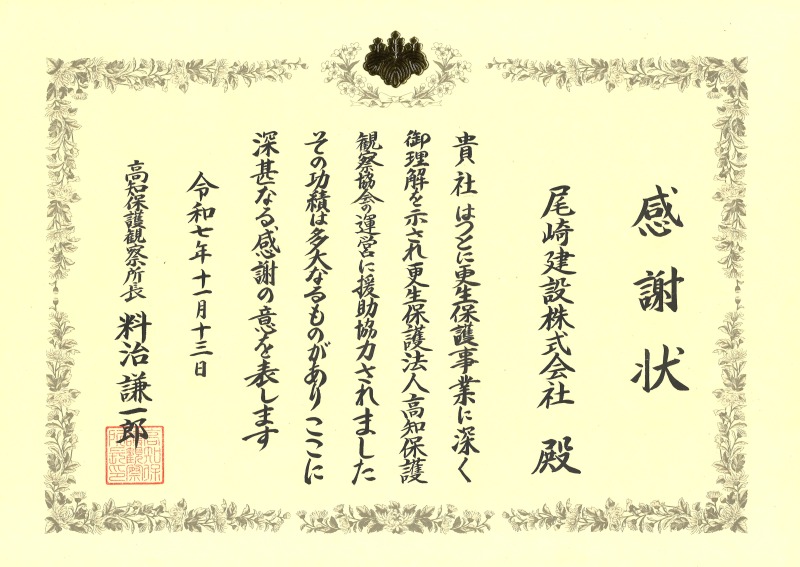 感謝状
尾崎建設株式会社 殿
貴社はつとに更生保護事業に深く
御理解を示され更生保護法人高知保護
観察協会の運営に援助協力されました
その功績は多大なるものがありここに
深甚なる感謝の意を表します
令和七年十一月十三日
高知保護観察所長 料治謙一郎